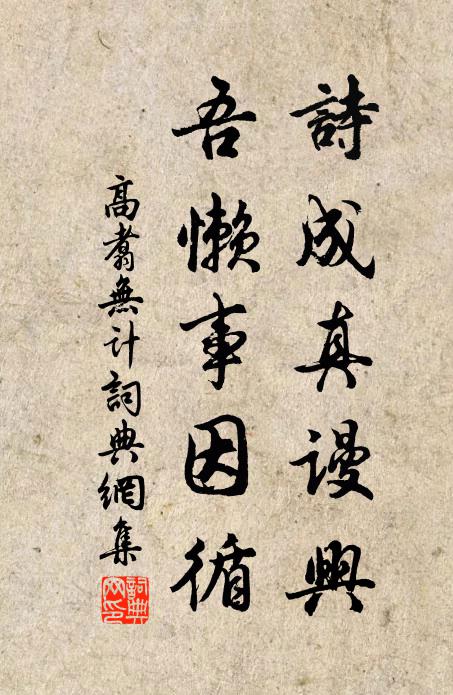 詩成真謾興
吾懶事因循
高翥無計詞典網集
詞典
網印